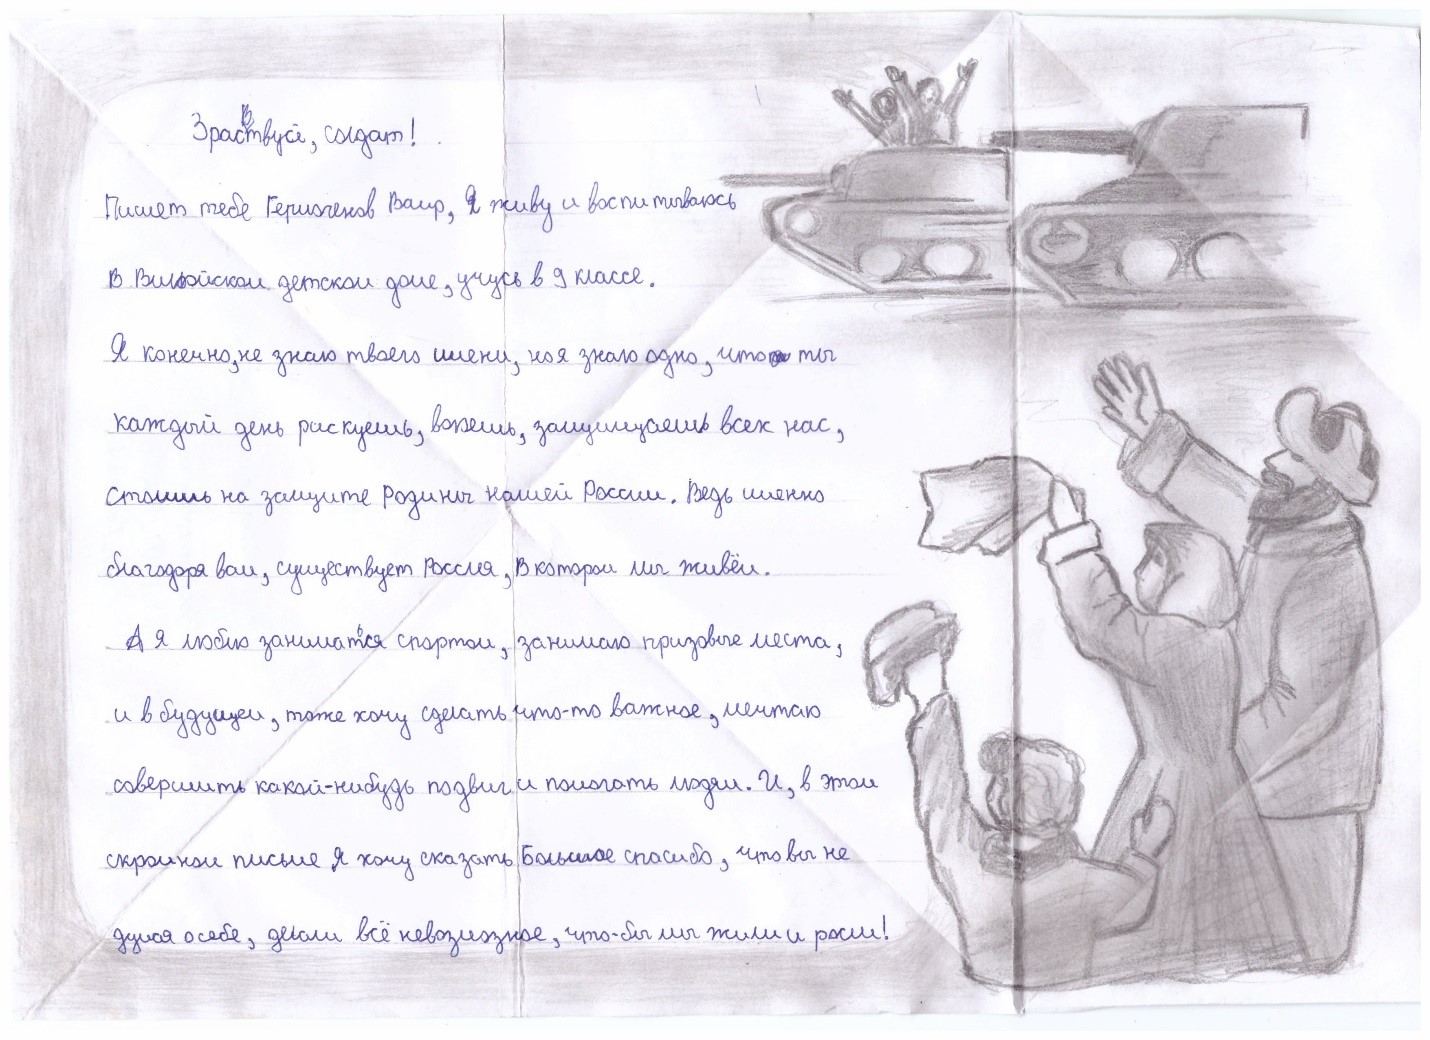 Зраствуй, солдат!
Пишет тебе Гермогенов Ваир, Я живу и воспитываюсь
в Вилюйском детском доме, учусь в 9 классе.
Я конечно, не знаю твоего имени, но я знаю одно, что ты
каждый день рискуешь, воюешь, защищаешь всех нас,
стоишь на защите Родины нашей России. Ведь именно
благодоря вам, существует Россия, в котором мы живём.
А я люблю заниматься спортом, занимаю призовые места,
и в будущем, тоже хочу сделать что-то важное, мечтаю
совершить какой-нибудь подвиг и помогать людям. И, в этом
скромном письме я хочу сказать Большое спасибо, что вы не
думая о себе, делали всё невозможное, что-бы мы жили и росли!